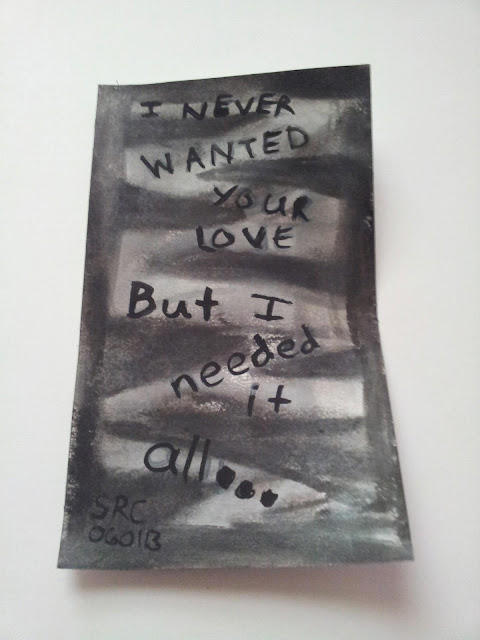 I NEVER
WANTED
YOUR
LOVE
But I
needed
it
all...
SRC
060113